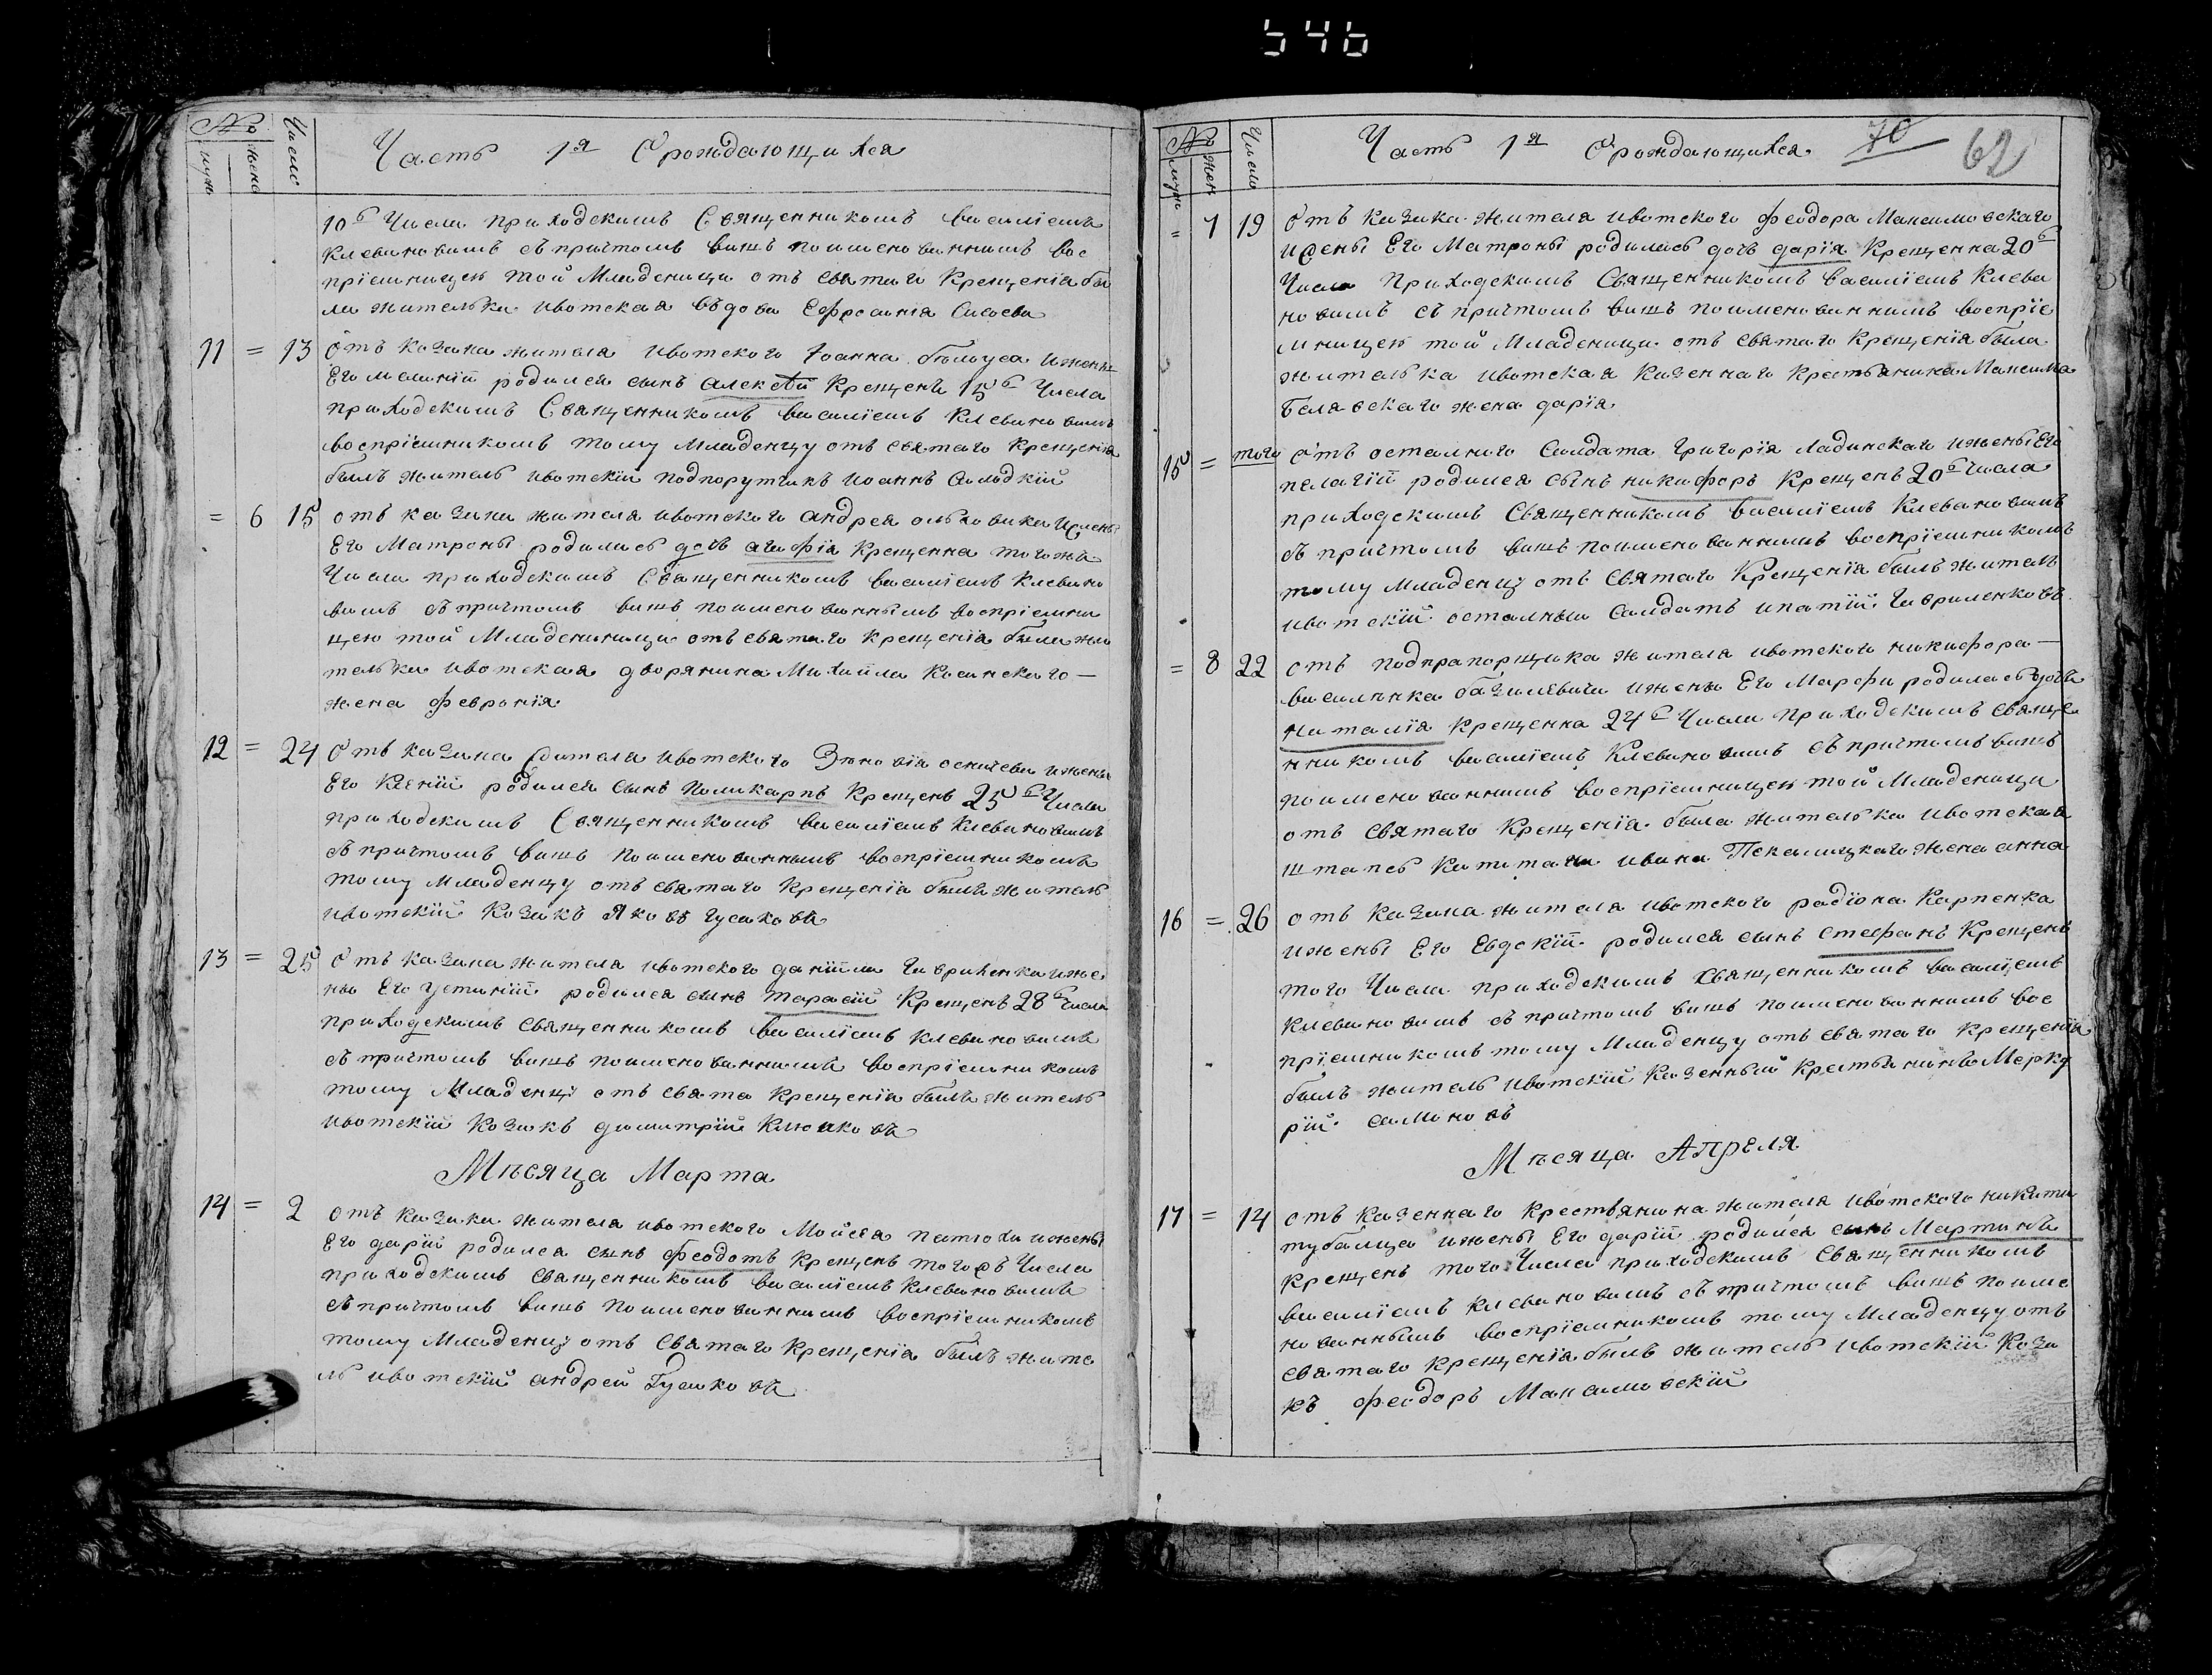 546
№ Число Часть 1я О рождающихся
муж жен
10го Числа приходскимъ Священникомъ василіемъ
Клевановимъ съ причтомъ вишъ поименованнимъ вос
пріемницею той Младеници отъ святаго Крещенія бы
ла жителька ивотская въдова Ефросинія Сисоева
11 = 13 Отъ козака жителя ивотского Іоанна белоуса и жени
Его меланіи родился сынъ алексѣй Крещенъ 15го Числа
приходскимъ Священникомъ василіемъ Клевановимъ
воспріемникомъ тому младенцу отъ святаго Крещенія
былъ житель ивотскій подпорутчикъ иоаннъ
= 6 15 отъ казака жителя ивотского андрея ольховика и жены
Его Матроны родилась дочъ агафія Крещенна тогожъ
Числа приходскимъ Священникомъ василіемъ Клевано
вимъ съ причтомъ вишъ поименованнымъ воспріемни
цею той Младеници отъ святаго крещенія была жи
телька ивотская дворянина Михаила Косинскаго —
жена февронія
12 = 24 Отъ казака жителя ивотского Зеновія осничева и жены
Его Ксеніи родился сынъ поликарпъ Крещенъ 25го Числа
приходскимъ Священникомъ василіемъ Клевановимъ
съ причтомъ вишъ поименованнымъ воспріемникомъ
тому Младенцу отъ святаго Крещенія былъ житель
ивотскій Козакъ Яковъ гусаковъ
13 = 25 Отъ казака жителя ивотского даніила Гавриленка и же
ны Его Устиніи родился сынъ тарасій Крещенъ 28го Числа
приходскимъ священникомъ василіемъ клевановимъ
съ причтомъ вишъ поименованнимъ воспріемникомъ
тому Младенцу отъ свята Крещенія былъ житель
ивотскій Козакъ димитрій Клюиковъ
Мѣсяца Марта
14 = 2 отъ казака жителя ивотского Мойсея патюхи и жены
Его даріи родился сынъ феодотъ Крещенъ тогожъ Числа
приходскимъ священникомъ василіемъ Клевановимъ
съ причтомъ вишъ поименованнимъ воспріемникомъ
тому Младенцу отъ Святаго Крещенія былъ жите
ль ивотскій андрей Гусаковъ
№ Число Часть 1я О рождающихся 70 62
муж жен
= 7 19 Отъ казака жителя ивотского феодора Максимовскаго
и жены Его Матроны родилась дочъ дарія Крещенна 20го
Числа приходскимъ Священникомъ василіемъ Клева
новимъ съ причтомъ вишъ поименованнимъ воспріе
мницею той Младеници отъ святаго Крещенія была
жителька ивотская казеннаго крестьянина Максима
Белявскаго жена дарія
15 = того Отъ осталного Салдата григорія Ладинскаго и жены Его
пелагіи родился сынъ никифоръ Крещенъ 20го Числа
приходскимъ Священникомъ василіемъ Клевановимъ
съ причтомъ вишъ поименованнимъ воспріемникомъ
тому младенцу отъ Святаго Крещенія былъ житель
ивотскій осталный салдатъ ипатій Гавриленковъ
= 8 22 отъ подпрапорщика жителя ивотского никифора —
василинка базилевича и жены Его Марфы родилась дочъ
наталія Крещенна 24го Числа приходскимъ свяще
нникомъ василіемъ Клевановимъ съ причтомъ вишъ
поименованнимъ воспріемницею той Младеници
отъ Святаго Крещенія была жителька ивотская
штапсъ капитана ивана Пекалицкаго жена анна
16 = 26 отъ казака жителя ивотского радіона Карпенка
и жены Его Евдокіи родился сынъ стефанъ Крещенъ
того Числа приходскимъ священникомъ василіемъ
клевановимъ съ причтомъ вишъ поименованнимъ вос
пріемникомъ тому Младенцу отъ святаго крещенія
былъ житель ивотскій Казенный Крестьянинъ Мерку
рій самоновъ
Мѣсяца Апреля
17 = 14 отъ казеннаго крестьянина жителя ивотского никиты
тубалца и жены Его даріи родился сынъ Мартинъ
крещенъ того Числа приходскимъ Священникомъ
василіемъ клевановимъ съ причтомъ вишъ поиме
нованнымъ воспріемникомъ тому Младенцу отъ
святаго крещенія былъ житель ивотскій Коза
къ феодоръ Максимовскій